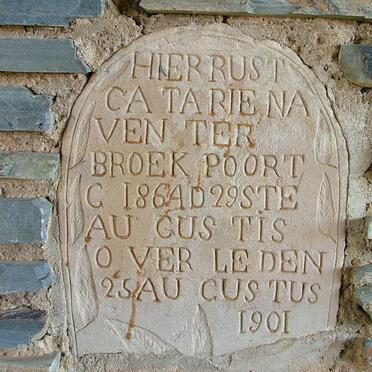 HIER RUST
CA TA RIE NA
VEN TER
BROEK POORT
G 1864 D 29STE
AU GUS TIS
O VER LE DEN
25 AU GUS TUS
1901